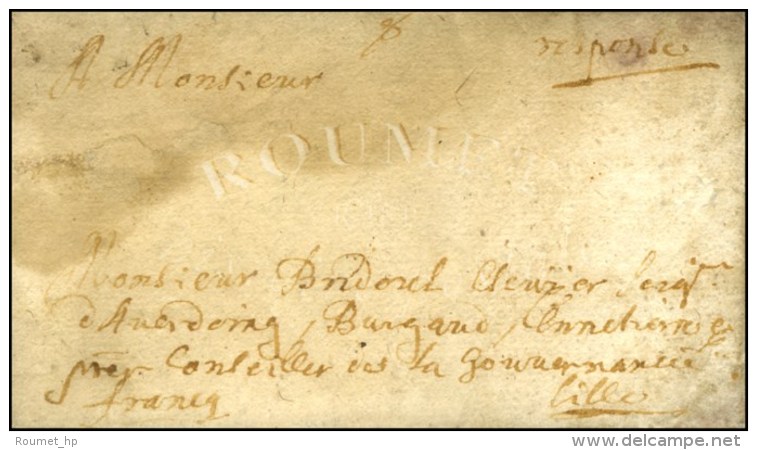 A Monsieur
response
ROUMET
Monsieur Bridoul Escuÿer
d'Averdoing, Burgaud, Ennetieres &
pr̃er Conseiller de la Gouvernance
francq
Lille
Roumet_hp
www.delcampe.net